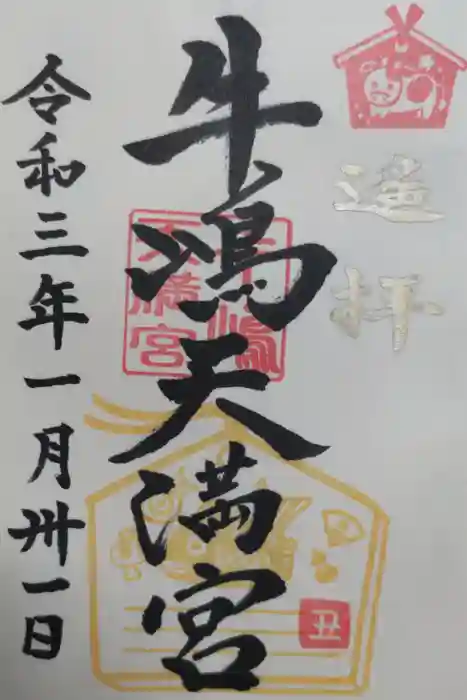 遥拝
牛嶋天満宮
牛嶋天満宮
丑
令和三年一月卅一日